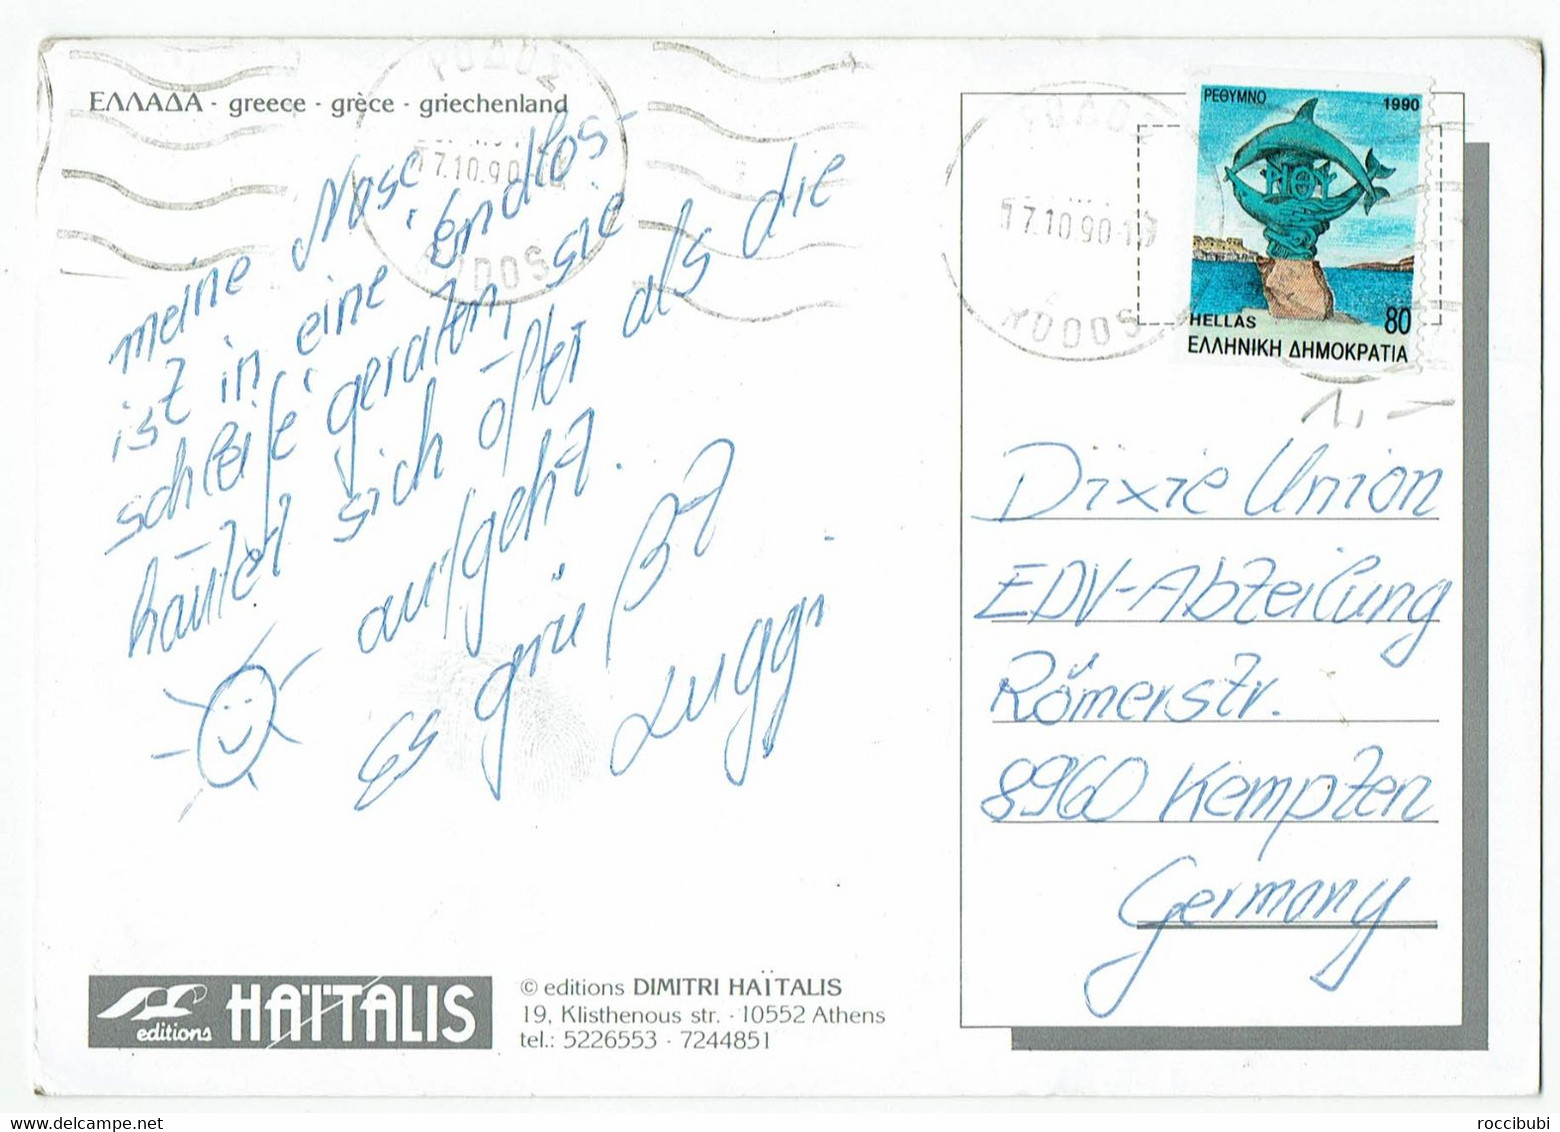 ΕΛΛΑΔΑ - greece - grèce - griechenland
ΡΟΔΟΣ
17.10.90
RODOS
meine Nase
ist in eine Endlos-
schleife geraten, sie
häutet sich öfter als die
aufgeht.
Es grüßt
Luggi
editions HAÏTALIS
© editions DIMITRI HAÏTALIS
19, Klisthenous str. · 10552 Athens
tel.: 5226553 · 7244851
ΡΟΔΟΣ
17.10.90-19
RODOS
ΡΕΘΥΜΝΟ 1990
HELLAS 80
ΕΛΛΗΝΙΚΗ ΔΗΜΟΚΡΑΤΙΑ
1,-
Dixie Union
EDV-Abteilung
Römerstr.
8960 Kempten
Germany
roccibubi